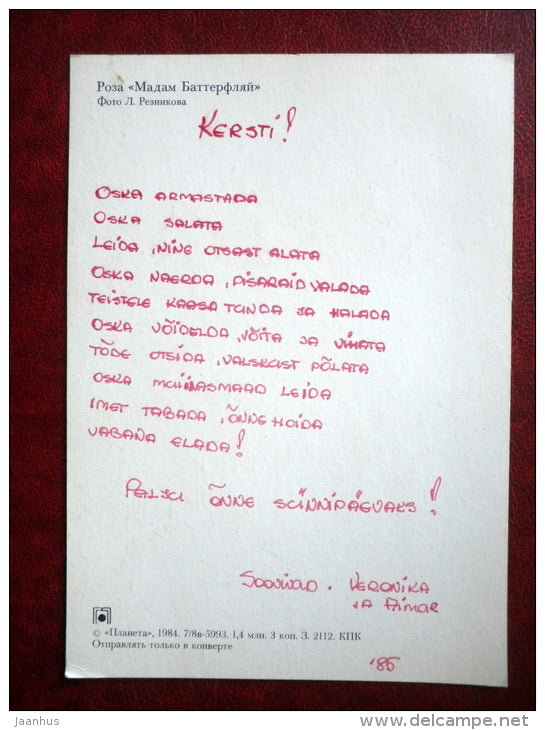 Роза «Мадам Баттерфляй»
Фото Л. Резникова
KERSTI!
OSKA ARMASTADA
OSKA SALATA
LEIDA, NING OTSAST ALATA
OSKA NAERDA, PISARAID VALADA
TEISTELE KAASA TUNDA JA HALADA
OSKA VÕIDELDA, VÕITA JA VIHATA
TÕDE OTSIDA, VALSKUST PÕLATA
OSKA MUINASMAAD LEIDA
IMET TABADA, ÕNNE HOIDA
VABANA ELADA!
PALJU ÕNNE SÜNNIPÄEVAKS!
SOOVIVAD. VERONIKA
JA AIMAR
© «Планета», 1984. 7/8в-5993. 1,4 млн. 3 коп. З. 2112. КПК
Отправлять только в конверте
'85
jaanhus
www.delcampe.net